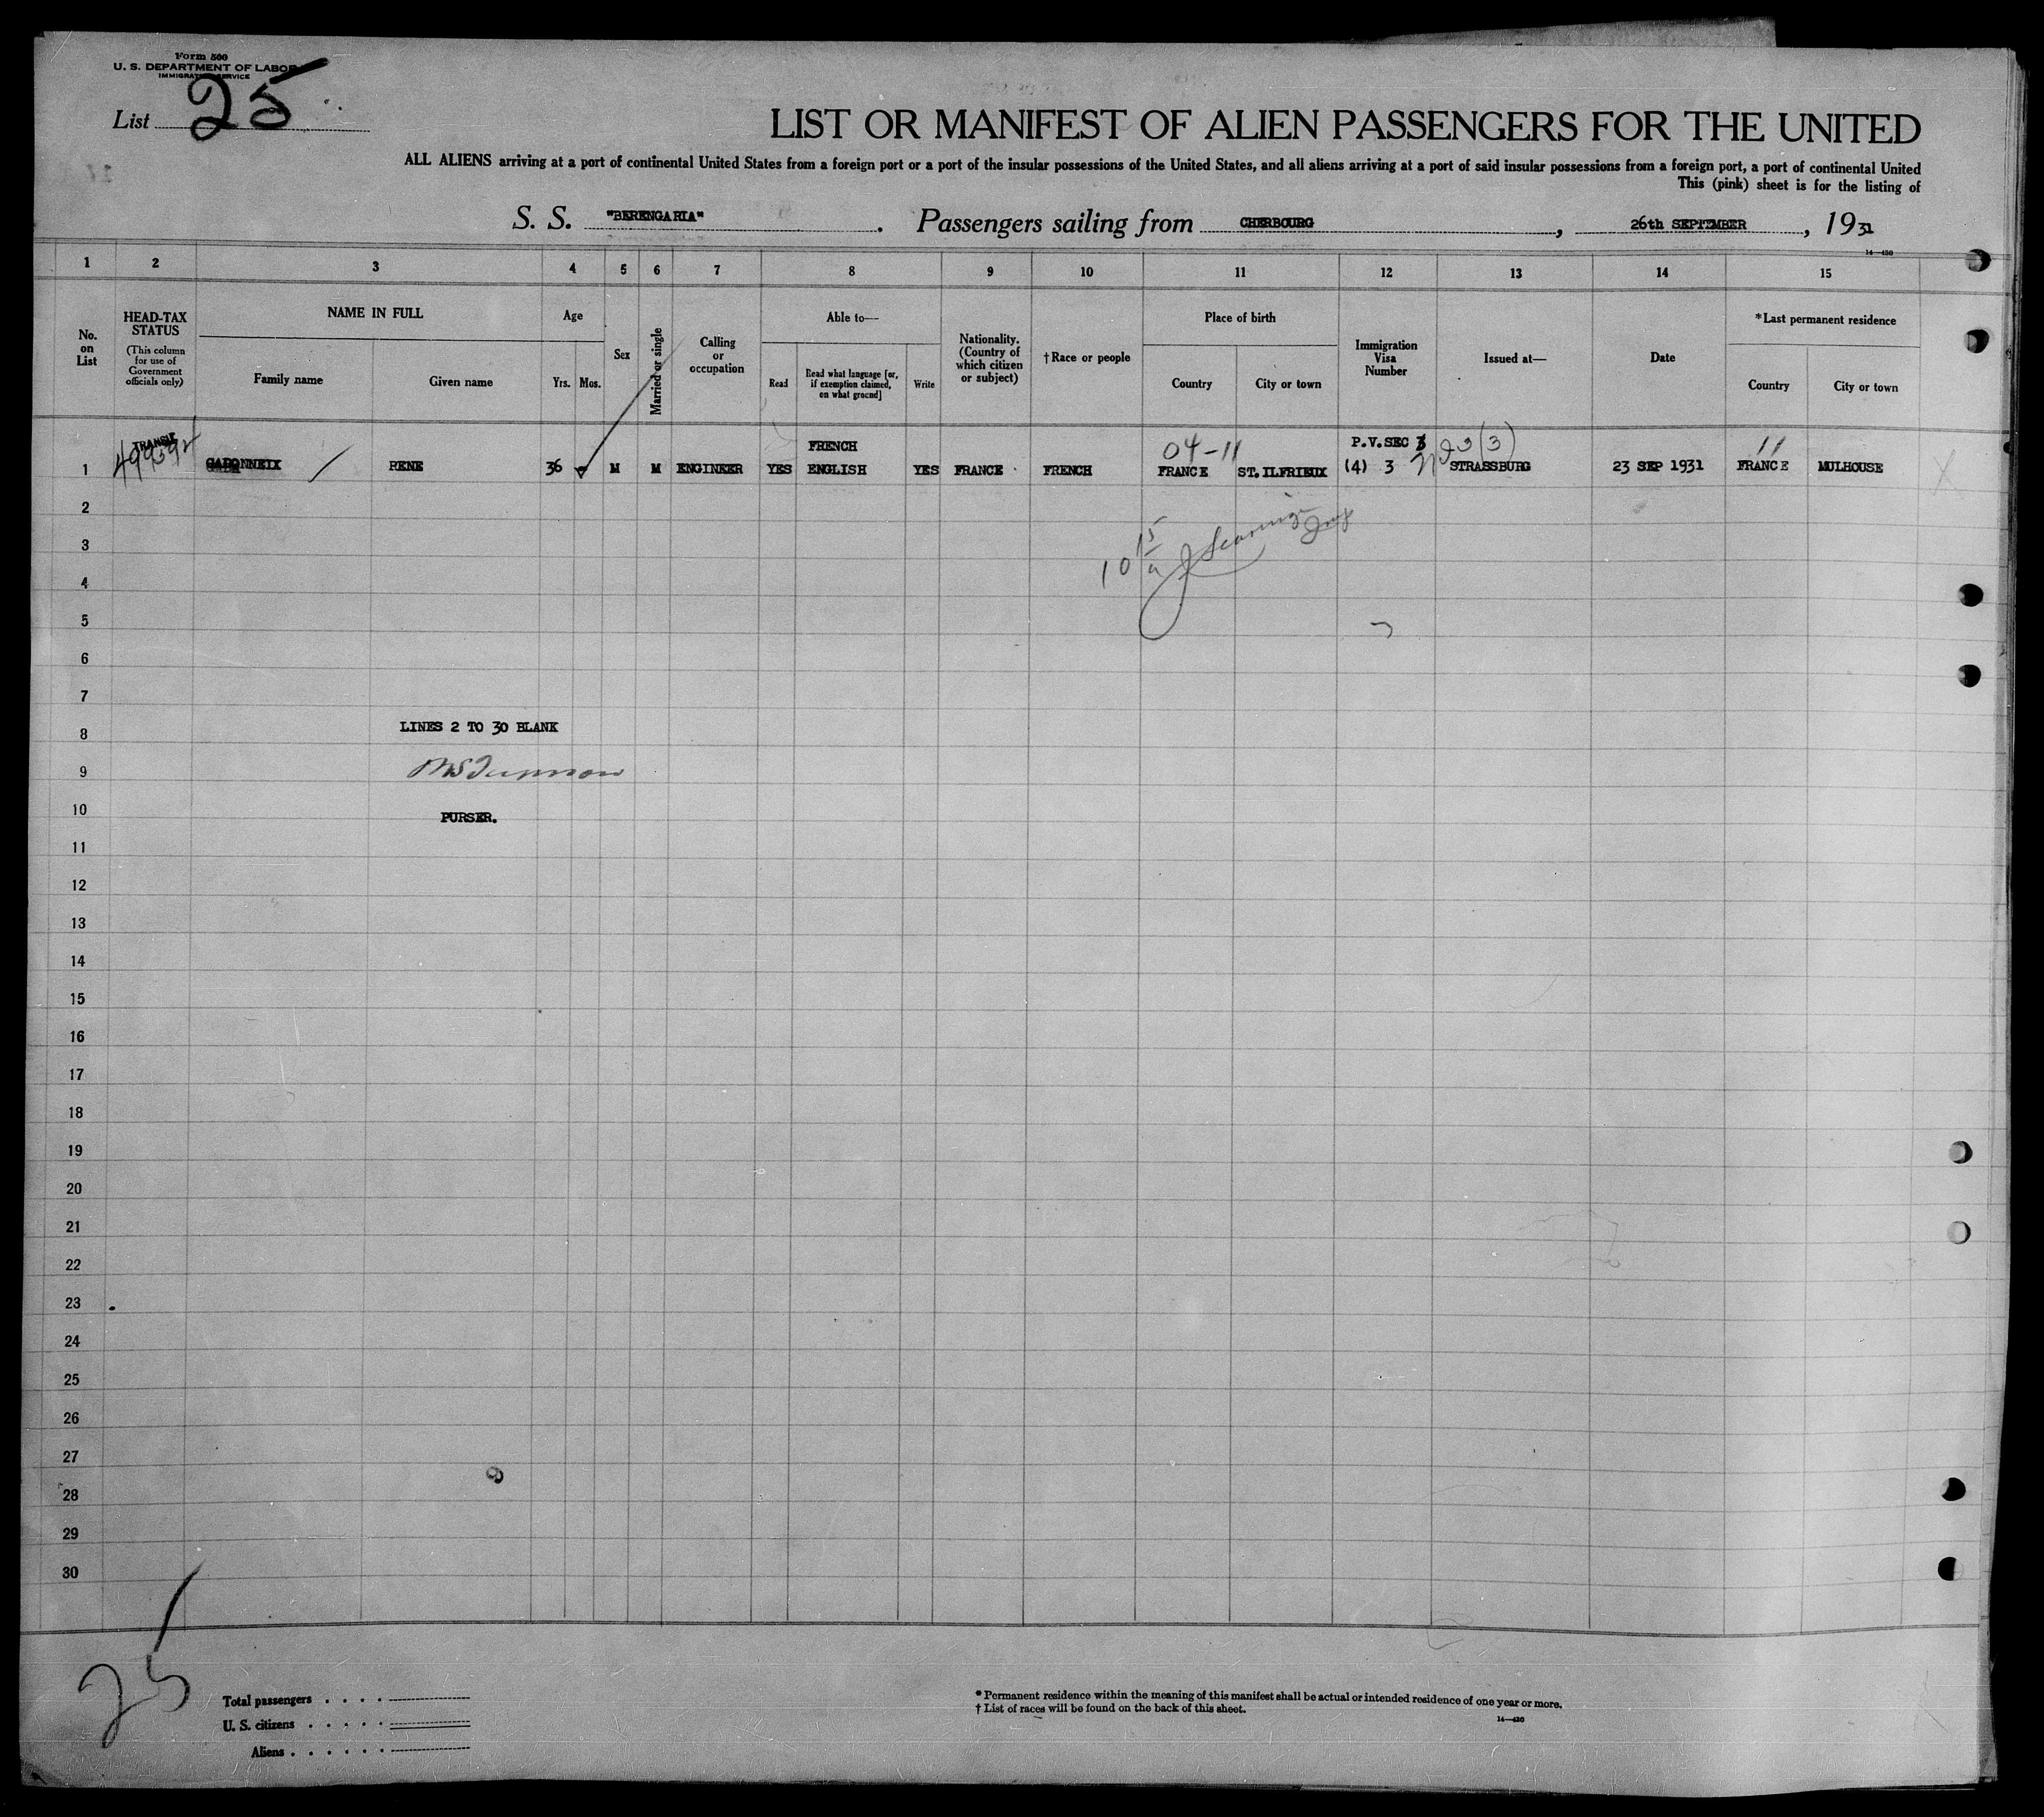 Form 500
U. S. DEPARTMENT OF LABOR
IMMIGRATION SERVICE
List 25
LIST OR MANIFEST OF ALIEN PASSENGERS FOR THE UNITED
ALL ALIENS arriving at a port of continental United States from a foreign port or a port of the insular possessions of the United States, and all aliens arriving at a port of said insular possessions from a foreign port, a port of continental United
This (pink) sheet is for the listing of
S. S. "BERENGARIA". Passengers sailing from CHERBOURG, 26th SEPTEMBER, 1931
14—430
1 2 3 4 5 6 7 8 9 10 11 12 13 14 15
No. on List
HEAD-TAX STATUS
(This column for use of Government officials only)
NAME IN FULL
Family name
Given name
Age
Yrs.
Mos.
Sex
Married or single
Calling or occupation
Able to—
Read
Read what language [or, if exemption claimed, on what ground]
Write
Nationality. (Country of which citizen or subject)
† Race or people
Place of birth
Country
City or town
Immigration Visa Number
Issued at—
Date
*Last permanent residence
Country
City or town
TRANSIT
FRENCH
04-11
P.V.SEC 3
(3)
11
1 RENE 36 M M ENGINEER YES ENGLISH YES FRANCE FRENCH FRANCE ST. ILFRIEUX (4) 3 STRASSBURG 23 SEP 1931 FRANCE MULHOUSE
2
3
4
5
6
7
LINES 2 TO 30 BLANK
8
9
10
PURSER.
11
12
13
14
15
16
17
18
19
20
21
22
23
24
25
26
27
28
29
30
25
Total passengers
U. S. citizens
Aliens
* Permanent residence within the meaning of this manifest shall be actual or intended residence of one year or more.
† List of races will be found on the back of this sheet.
14—430